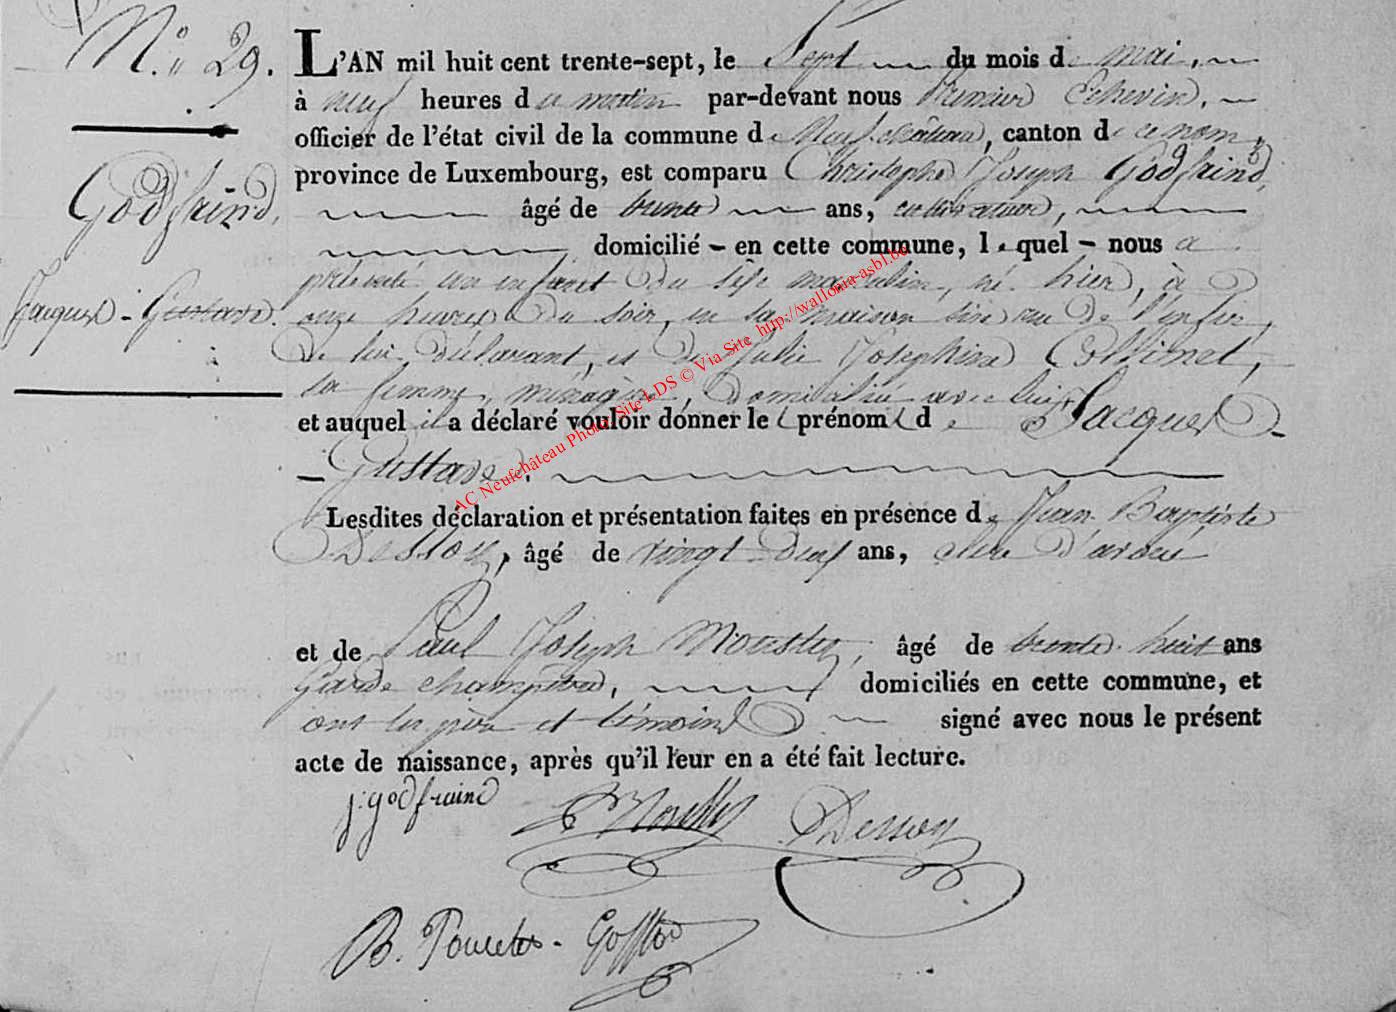 N.° 29.
L'AN mil huit cent trente-sept, le Sept du mois de mai,
à neuf heures du matin par-devant nous Premier Echevin,
officier de l'état civil de la commune de Neufchâteau, canton de ce nom,
province de Luxembourg, est comparu Christophe Joseph Godfrind,
Godfrind,
âgé de trente ans, cultivateur,
domicilié en cette commune, lequel nous a
présenté un enfant du sexe masculin, né hier, à
Jacques-Gustave.
onze heures du soir, en sa maison sise rue de l'enfer,
de lui déclarant, et de Julie Joséphine Collinet,
sa femme, ménagère, domiciliée avec lui,
et auquel il a déclaré vouloir donner les prénoms de Jacques
Gustave.
Lesdites déclaration et présentation faites en présence de Jean Baptiste
Dessoy, âgé de vingt deux ans, clerc d'avoué
et de Paul Joseph Mousty, âgé de trente huit ans
Garde champêtre, domiciliés en cette commune, et
ont les père et témoins signé avec nous le présent
acte de naissance, après qu'il leur en a été fait lecture.
j. godfruind
Dessoy
B. Poncelet-Gofflot
AC Neufchâteau Photo Site LDS © Via Site http://wallonia-asbl.be